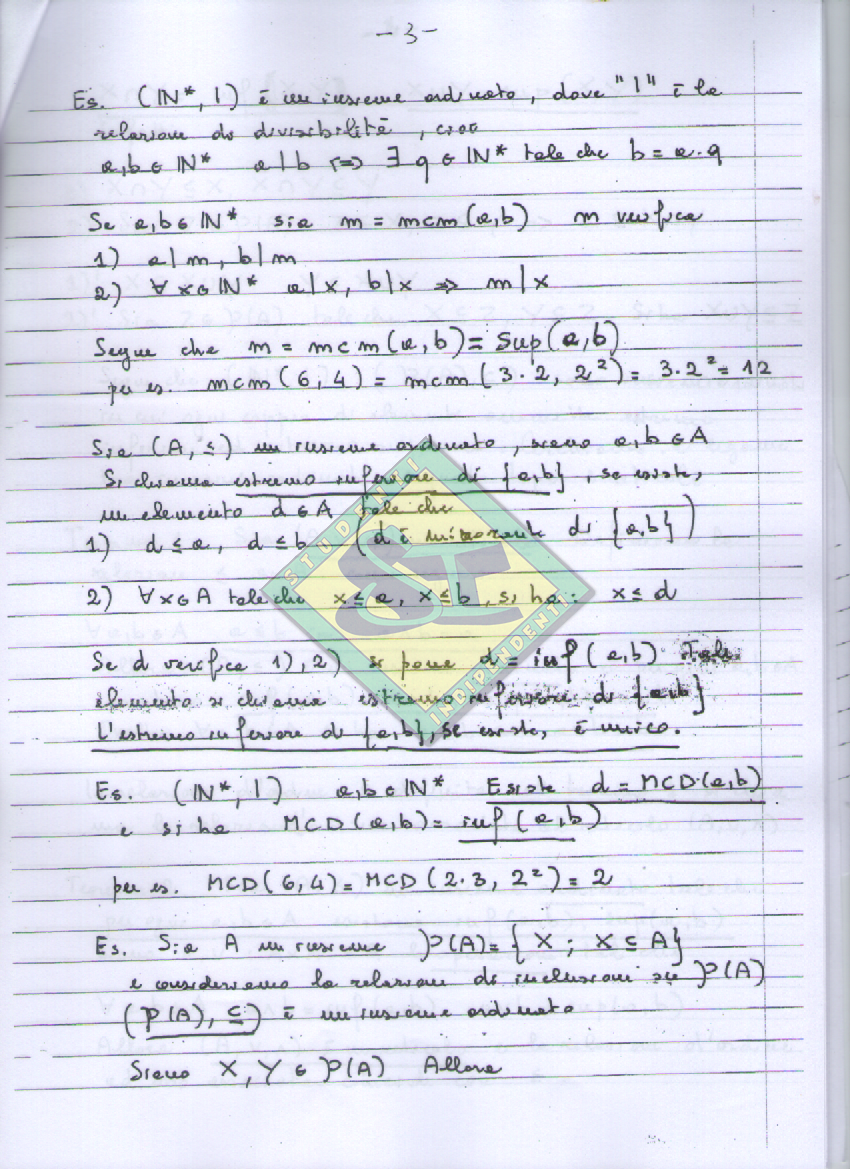 - 3 -
Es. (ℕ*, |) è un insieme ordinato, dove "|" è la
relazione di divisibilità, cioè
a,b ∈ ℕ* a|b ⇔ ∃ q ∈ ℕ* tale che b = a·q
Se a,b ∈ ℕ* sia m = mcm(a,b) m verifica
1) a|m, b|m
2) ∀ x ∈ ℕ* a|x, b|x ⇒ m|x
Segue che m = mcm(a,b) = Sup(a,b)
per es. mcm(6,4) = mcm(3·2, 2²) = 3·2² = 12
Sia (A, ≤) un insieme ordinato, siano a,b ∈ A
Si chiama estremo inferiore di {a,b}, se esiste,
un elemento d ∈ A tale che
1) d ≤ a, d ≤ b (d è minorante di {a,b})
2) ∀ x ∈ A tale che x ≤ a, x ≤ b, si ha: x ≤ d
Se d verifica 1), 2) si pone d = inf(a,b) Tale
elemento si chiama estremo inferiore di {a,b}
L'estremo inferiore di {a,b}, se esiste, è unico.
Es. (ℕ*, |) a,b ∈ ℕ* Esiste d = MCD(a,b)
e si ha MCD(a,b) = inf(a,b)
per es. MCD(6,4) = MCD(2·3, 2²) = 2
Es. Sia A un insieme P(A) = {X ; X ⊆ A}
e consideriamo la relazione di inclusione su P(A)
(P(A), ⊆) è un insieme ordinato
Siano X, Y ∈ P(A) Allora
STUDENTI
SI
INDIPENDENTI